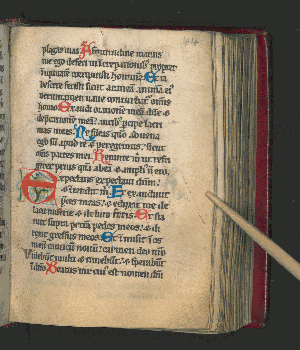 plagas tuas. A fortitudine manus
tue ego defeci in increpationib; propter
iniquitatē corripuisti hominē. Et ta
bescere fecisti sicut araneā animā ei
uerumptamen uane conturbat omis
homo. Exaudi orationē meā dn̄e &
dep̄cationē meā: auribȝ percipe lacri
mas meas. Ne sileas qm̄ aduena
ego sū apud te & peregrinus: sicut
om̄s patres mei. Remitte m̄ ut refri
gerer prius quā abeā & amplī n̄ ero.
Expectans expectaui dnm̄:
& intendit m̄. Et exaudiuit
p̄ces meas: & eduxit me de
lacu miserie & de luto fecis. Et sta
tuit supra petrā pedes meos: & di
rexit gressus meos. Et inmisit ī os
meū canticū nouū: carmen deo nr̄o
Videbunt multi & timebunt: & sperabunt
ī dn̄o. Beatus uir cui' est nomen dn̄i